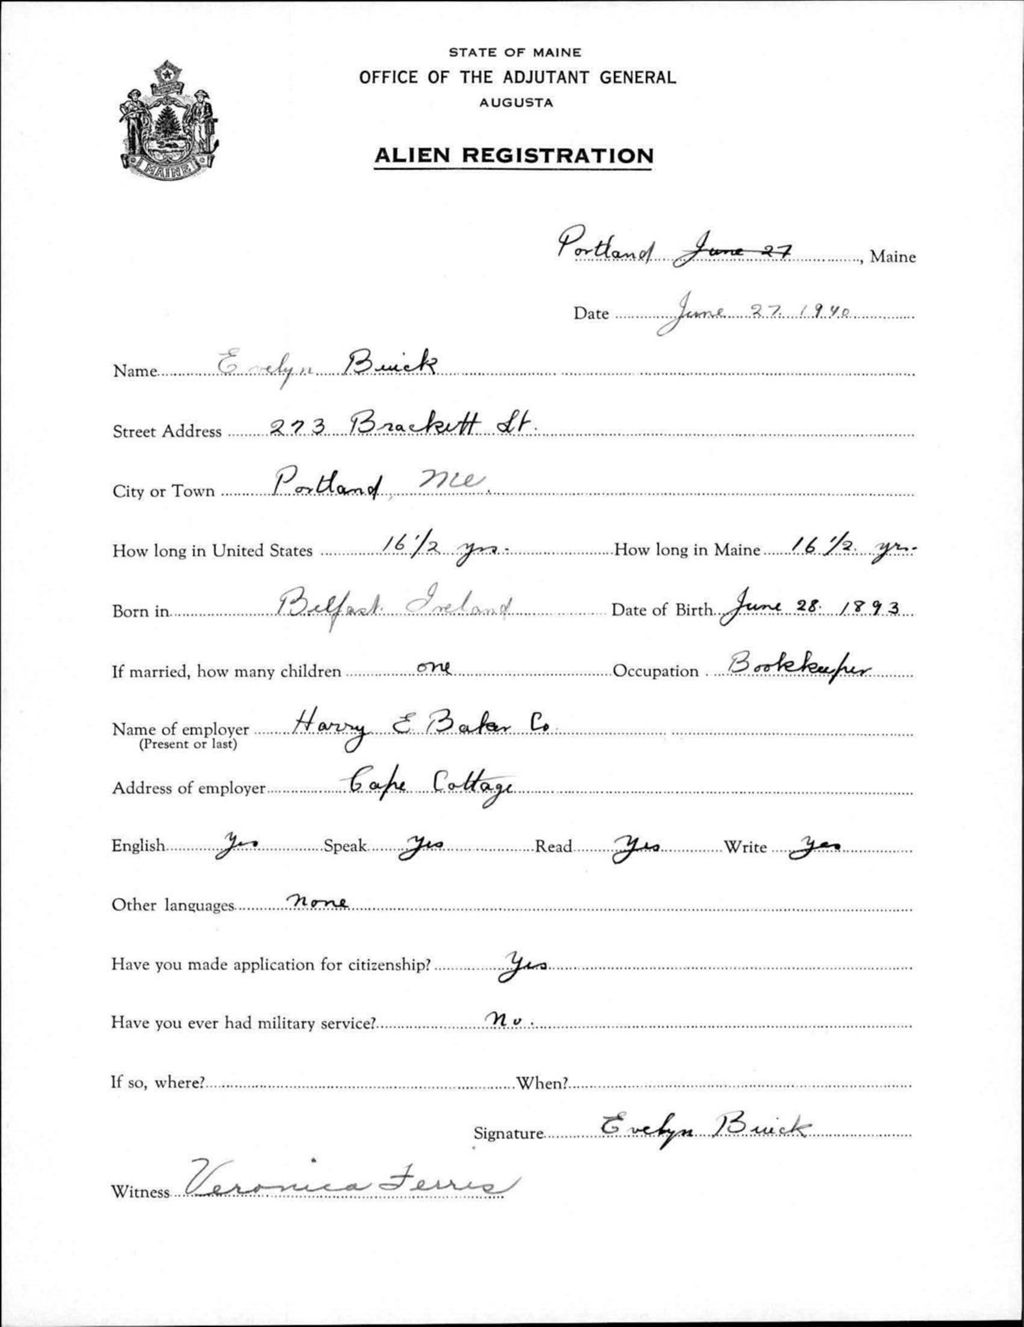 STATE OF MAINE
OFFICE OF THE ADJUTANT GENERAL
AUGUSTA
ALIEN REGISTRATION
MAINE
Portland June 27, Maine
Date June 27. 1940
Name Evelyn Buick
Street Address 273 Brackett St.
City or Town Portland, Me.
How long in United States 16 1/2 yrs. How long in Maine 16 1/2 yrs.
Born in Belfast Ireland Date of Birth June 28. 1893
If married, how many children one Occupation Bookkeeper
Name of employer Harry E Baker Co
(Present or last)
Address of employer Cape Cottage
English Yes Speak Yes Read Yes Write Yes
Other languages None
Have you made application for citizenship? Yes
Have you ever had military service? No.
If so, where? When?
Signature Evelyn Buick
Witness Veronica Ferris